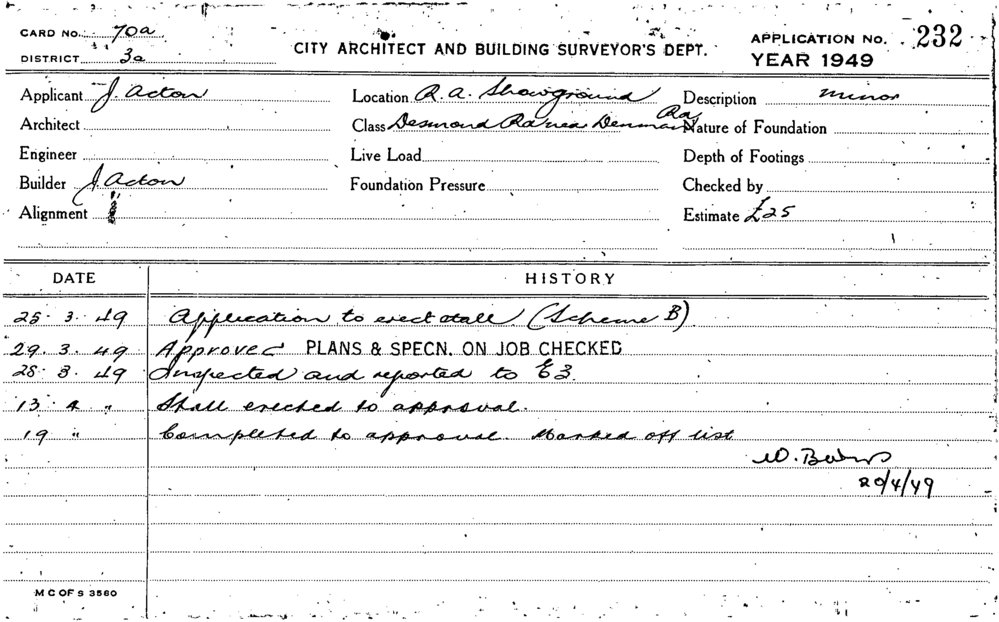 CARD No. 70a
DISTRICT 3a
CITY ARCHITECT AND BUILDING SURVEYOR'S DEPT.
APPLICATION No. 232
YEAR 1949
Applicant J. Acton
Location R. A. Showground
Description Minor
Architect
Class Desmond Denman Rd
Nature of Foundation
Engineer
Live Load
Depth of Footings
Builder J. Acton
Foundation Pressure
Checked by
Alignment
Estimate £25
DATE HISTORY
25. 3. 49 Application to erect stall (Scheme B)
29. 3. 49 Approved PLANS & SPECN. ON JOB CHECKED
28. 3. 49 Inspected and reported to E3.
13 4 " Stall erected to approval.
19 " Completed to approval. Marked off list
20/4/49
M C OF S 3560